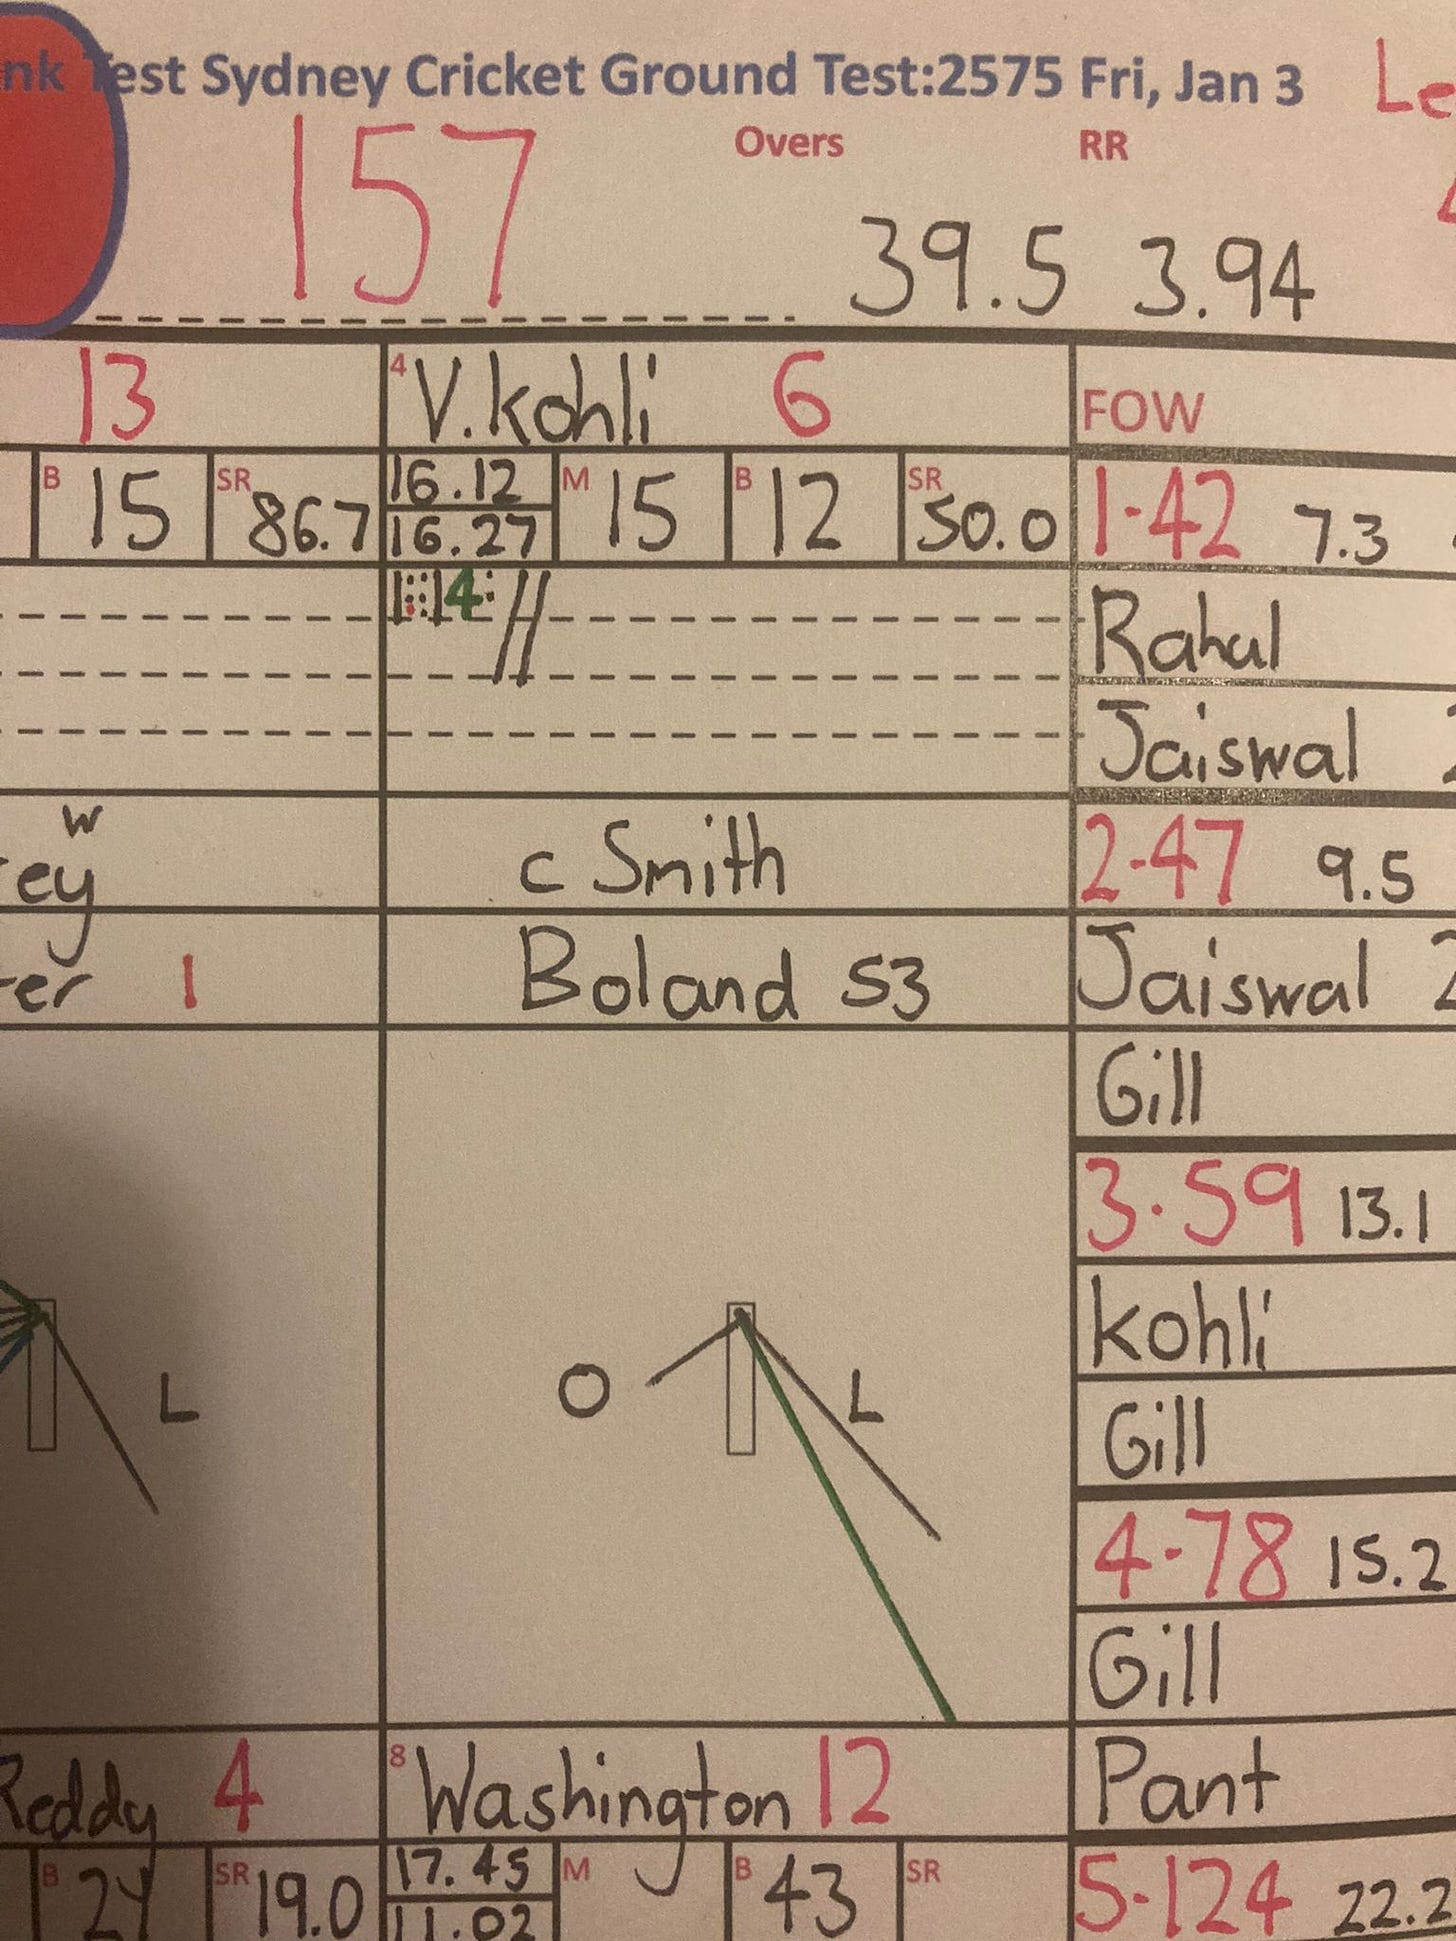 nk Test Sydney Cricket Ground Test:2575 Fri, Jan 3 Le
157 Overs 39.5 RR 3.94
13 4 V.Kohli 6 FOW
B 15 SR 86.7 16.12 16.27 M 15 B 12 SR 50.0 1-42 7.3
4
Rahul
Jaiswal
w
ey c Smith 2-47 9.5
er 1 Boland S3 Jaiswal 2
Gill
3-59 13.1
Kohli
L O L
Gill
4-78 15.2
Gill
Reddy 4 8 Washington 12 Pant
B SR 19.0 17.45 11.02 M B 43 SR 5-124 22.2